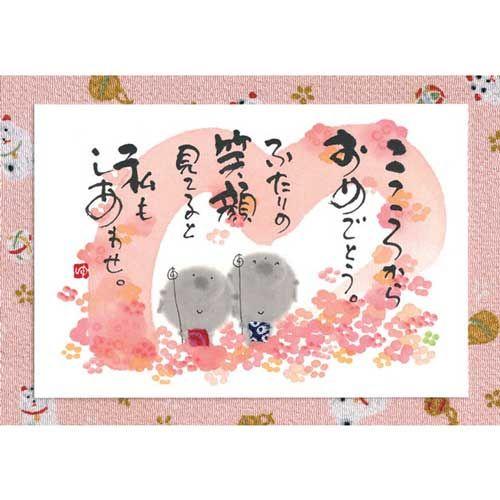 こころから
おめでとう。
ふたりの
笑顔
見てると
私も
しあわせ。
ゆ